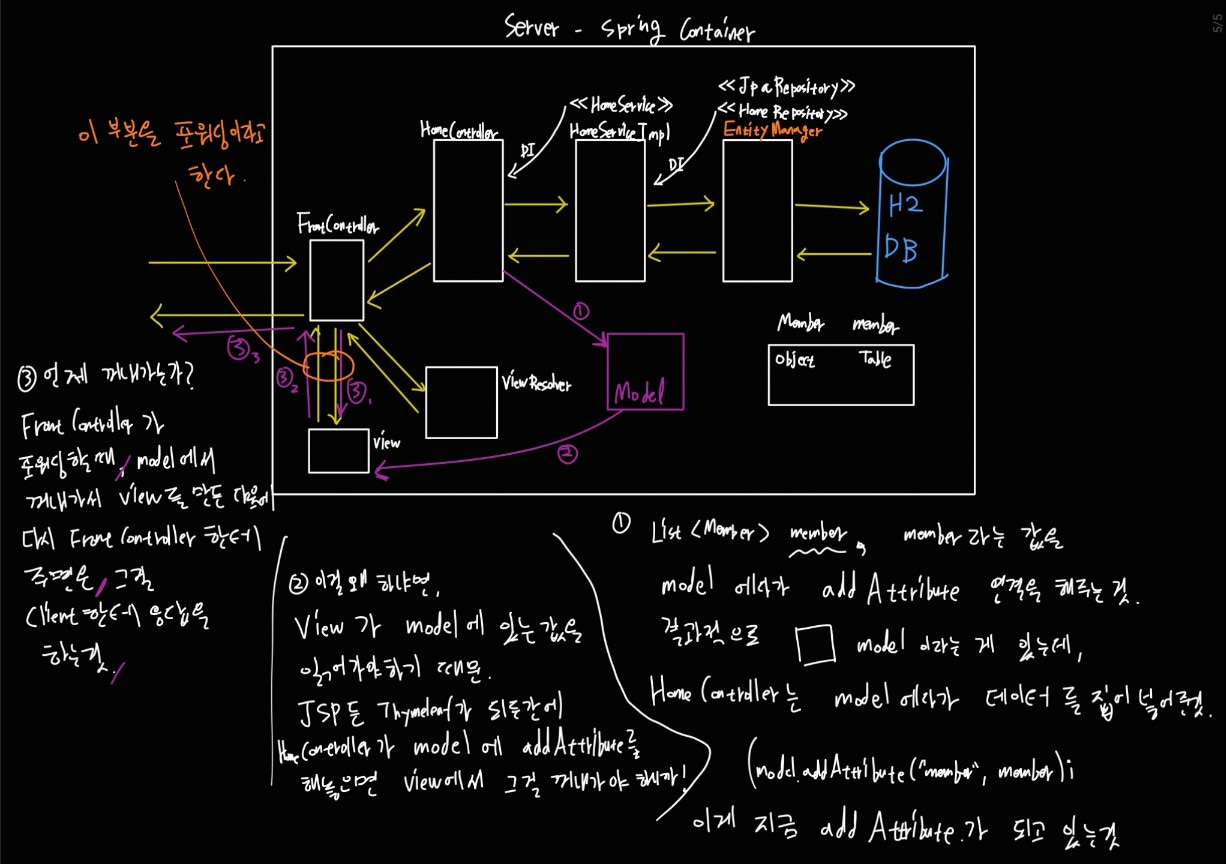 Server - Spring Container
5/5
이 부분을 포워딩이라고
한다.
<<JpaRepository>>
<<HomeService>>
<<HomeRepository>>
HomeController
HomeServiceImpl
EntityManager
DI
DI
H2
DB
FrontController
①
Member member
Object Table
Model
ViewResolver
View
②
③₁
③₂
③₃
③ 언제 꺼내가는가?
Front Controller가
포워딩할 때, model에서
꺼내가서 view를 만든 다음에
다시 Front Controller 한테
주면은, 그걸
Client한테 응답을
하는것.
② 이걸 왜 하냐면,
View가 model에 있는 값을
읽어가야하기 때문.
JSP든 Thymeleaf가 되든간에
HomeController가 model에 addAttribute를
해놓으면 view에서 그걸 꺼내가야 하니까!
① List<Member> member, member라는 값을
model에다가 addAttribute 연결을 해주는것.
결과적으로 model이라는 게 있는데,
HomeController는 model에다가 데이터를 집어 넣어준것.
(model.addAttribute("member", member);
이게 지금 addAttribute.가 되고 있는것